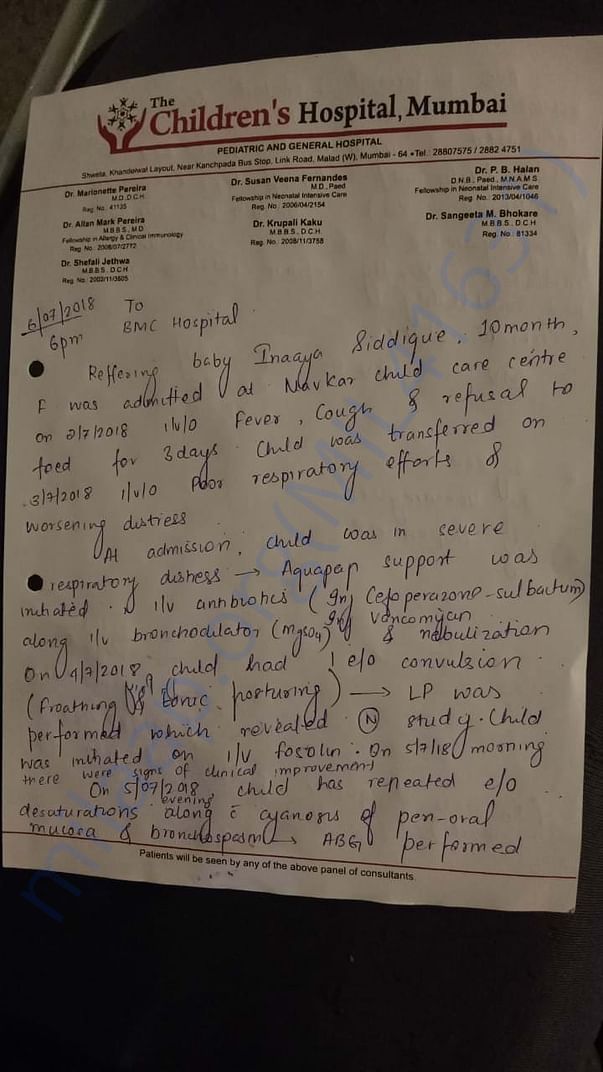 The
Children's Hospital, Mumbai
PEDIATRIC AND GENERAL HOSPITAL
Shweta, Khandelwal Layout, Near Kanchpada Bus Stop, Link Road, Malad (W), Mumbai - 64 • Tel.: 28807575 / 2882 4751
Dr. Marionette Pereira
M.D., D.C.H.
Reg. No. 41135
Dr. Allan Mark Pereira
M.B.B.S., M.D.
Fellowship in Allergy & Clinical Immunology
Reg. No. 2008/07/2772
Dr. Shefali Jethwa
M.B.B.S., D.C.H.
Reg. No. 2002/11/3605
Dr. Susan Veena Fernandes
M.D., Paed
Fellowship in Neonatal Intensive Care
Reg. No. 2006/04/2154
Dr. Krupali Kaku
M.B.B.S., D.C.H.
Reg. No. 2008/11/3758
Dr. P. B. Halan
D.N.B., Paed., M.N.A.M.S.
Fellowship in Neonatal Intensive Care
Reg. No. 2013/04/1046
Dr. Sangeeta M. Bhokare
M.B.B.S., D.C.H.
Reg. No. 81334
6/07/2018 To
6pm BMC Hospital
Reffering baby Inaaya Siddique, 10month,
F was admitted at Navkar child care centre
on 2/7/2018 i/v/o Fever, Cough & refusal to
feed for 3days. Child was transferred on
3/7/2018 i/v/o Poor respiratory efforts &
worsening distress
At admission, child was in severe
respiratory distress → Aquapap support was
initiated. i/v antibiotics (Inj Cefoperazone-sulbactum)
Inj Vancomycin
along i/v bronchodilator (MgSO4) & nebulization
On 4/7/2018 child had 1 e/o convulsion
(froathing & tonic posturing) → LP was
performed which revealed (N) study. Child
was initiated on i/v fosolin. On 5/7/18 morning
there were signs of clinical improvement
On 5/07/2018 child has repeated e/o
evening
desaturations along c̄ cyanosis of peri-oral
mucosa & bronchospasm → ABG performed
Patients will be seen by any of the above panel of consultants.